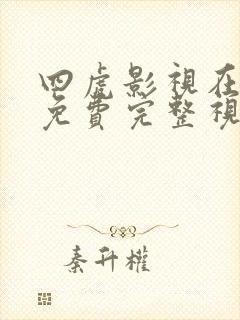 四虎影視在
免費完整視
秦升權